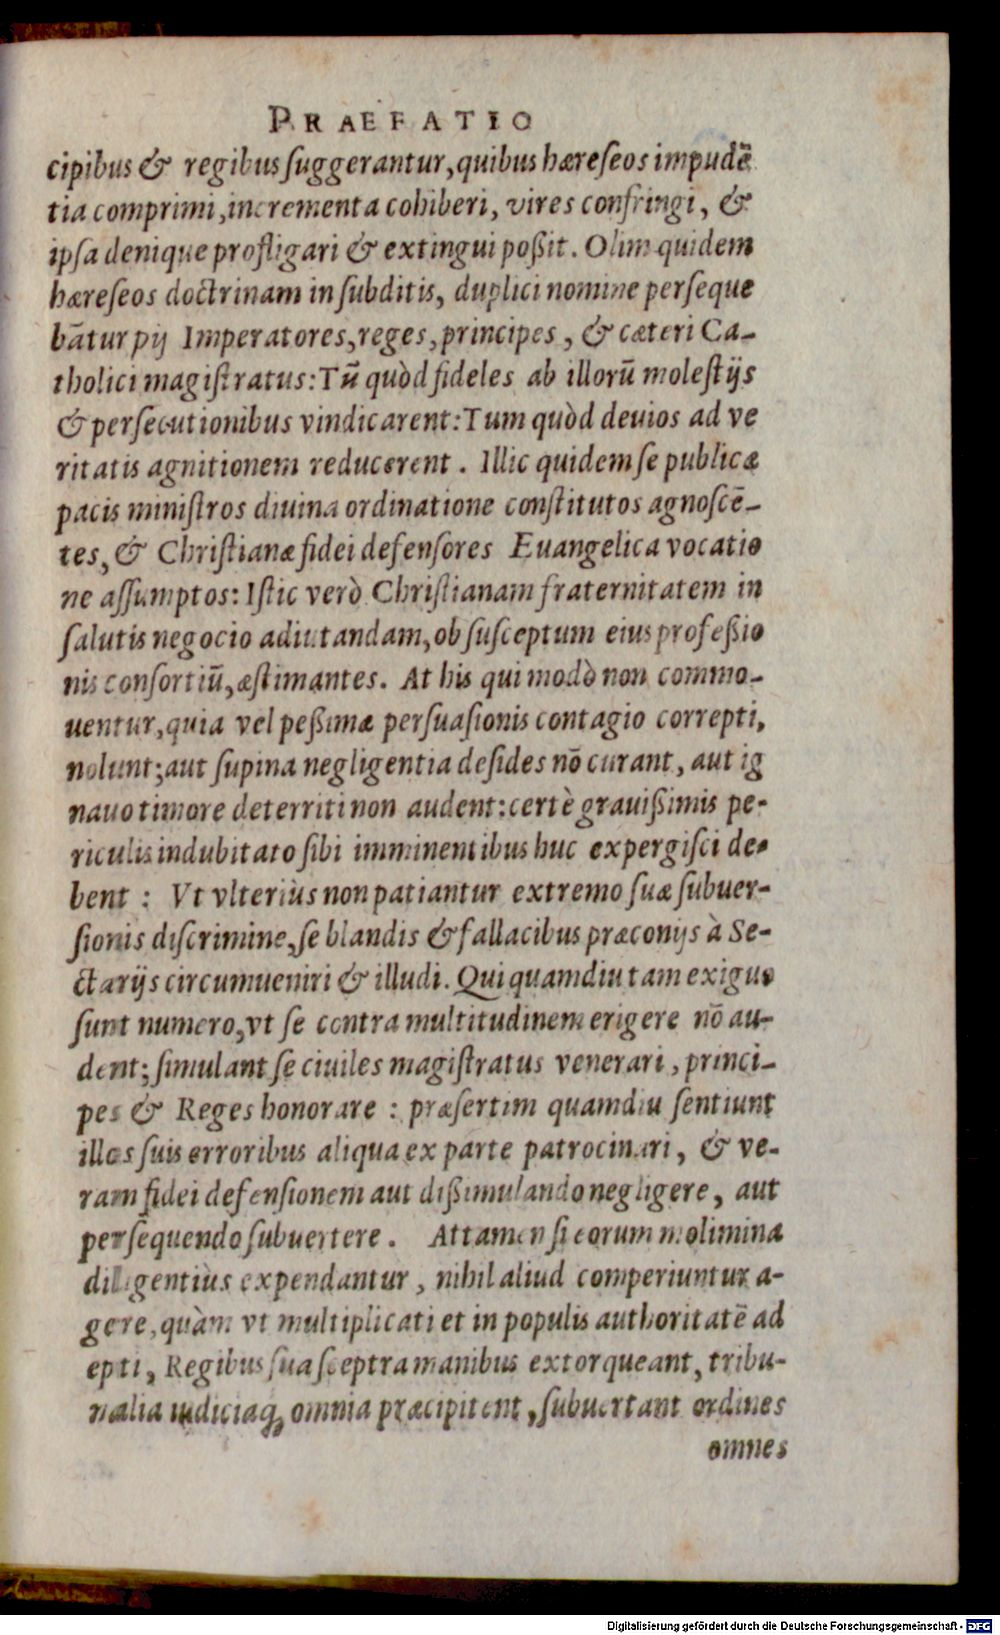 PRAEFATIO
cipibus & regibus ſuggerantur, quibus hæreſeos impudē
tia comprimi, incrementa cohiberi, vires confringi, &
ipſa denique profligari & extingui poßit. Olim quidem
hæreſeos doctrinam in ſubditis, duplici nomine perſeque
bātur pij Imperatores, reges, principes, & cæteri Ca-
tholici magiſtratus: Tū quòd fideles ab illorū moleſtijs
& perſecutionibus vindicarent: Tum quòd deuios ad ve
ritatis agnitionem reducerent. Illic quidem ſe publicæ
pacis miniſtros diuina ordinatione conſtitutos agnoſcē-
tes, & Chriſtianæ fidei defenſores Euangelica vocatio
ne aſſumptos: Iſtic verò Chriſtianam fraternitatem in
ſalutis negocio adiutandam, ob ſuſceptum eius profeßio
nis conſortiū, æſtimantes. At his qui modò non commo-
uentur, quia vel peßimæ perſuaſionis contagio correpti,
nolunt; aut ſupina negligentia deſides nō curant, aut ig
nauo timore deterriti non audent: certè grauißimis pe-
riculis indubitato ſibi imminentibus huc expergiſci de-
bent : Vt vlteriùs non patiantur extremo ſuæ ſubuer-
ſionis diſcrimine, ſe blandis & fallacibus præconijs à Se-
ctarijs circumueniri & illudi. Qui quamdiu tam exiguo
ſunt numero, vt ſe contra multitudinem erigere nō au-
dent; ſimulant ſe ciuiles magiſtratus venerari, princi-
pes & Reges honorare : præſertim quamdiu ſentiunt
illos ſuis erroribus aliqua ex parte patrocinari, & ve-
ram fidei defenſionem aut dißimulando negligere, aut
perſequendo ſubuertere. Attamen ſi eorum molimina
diligentiùs expendantur, nihil aliud comperiuntur a-
gere, quàm vt multiplicati et in populis authoritatē ad
epti, Regibus ſua ſceptra manibus extorqueant, tribu-
nalia iudiciaq́; omnia præcipitent, ſubuertant ordines
omnes
Digitalisierung gefördert durch die Deutsche Forschungsgemeinschaft - DFG